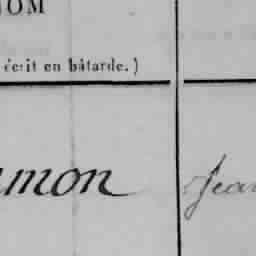 NOM
écrit en bâtarde.)
mon Jean